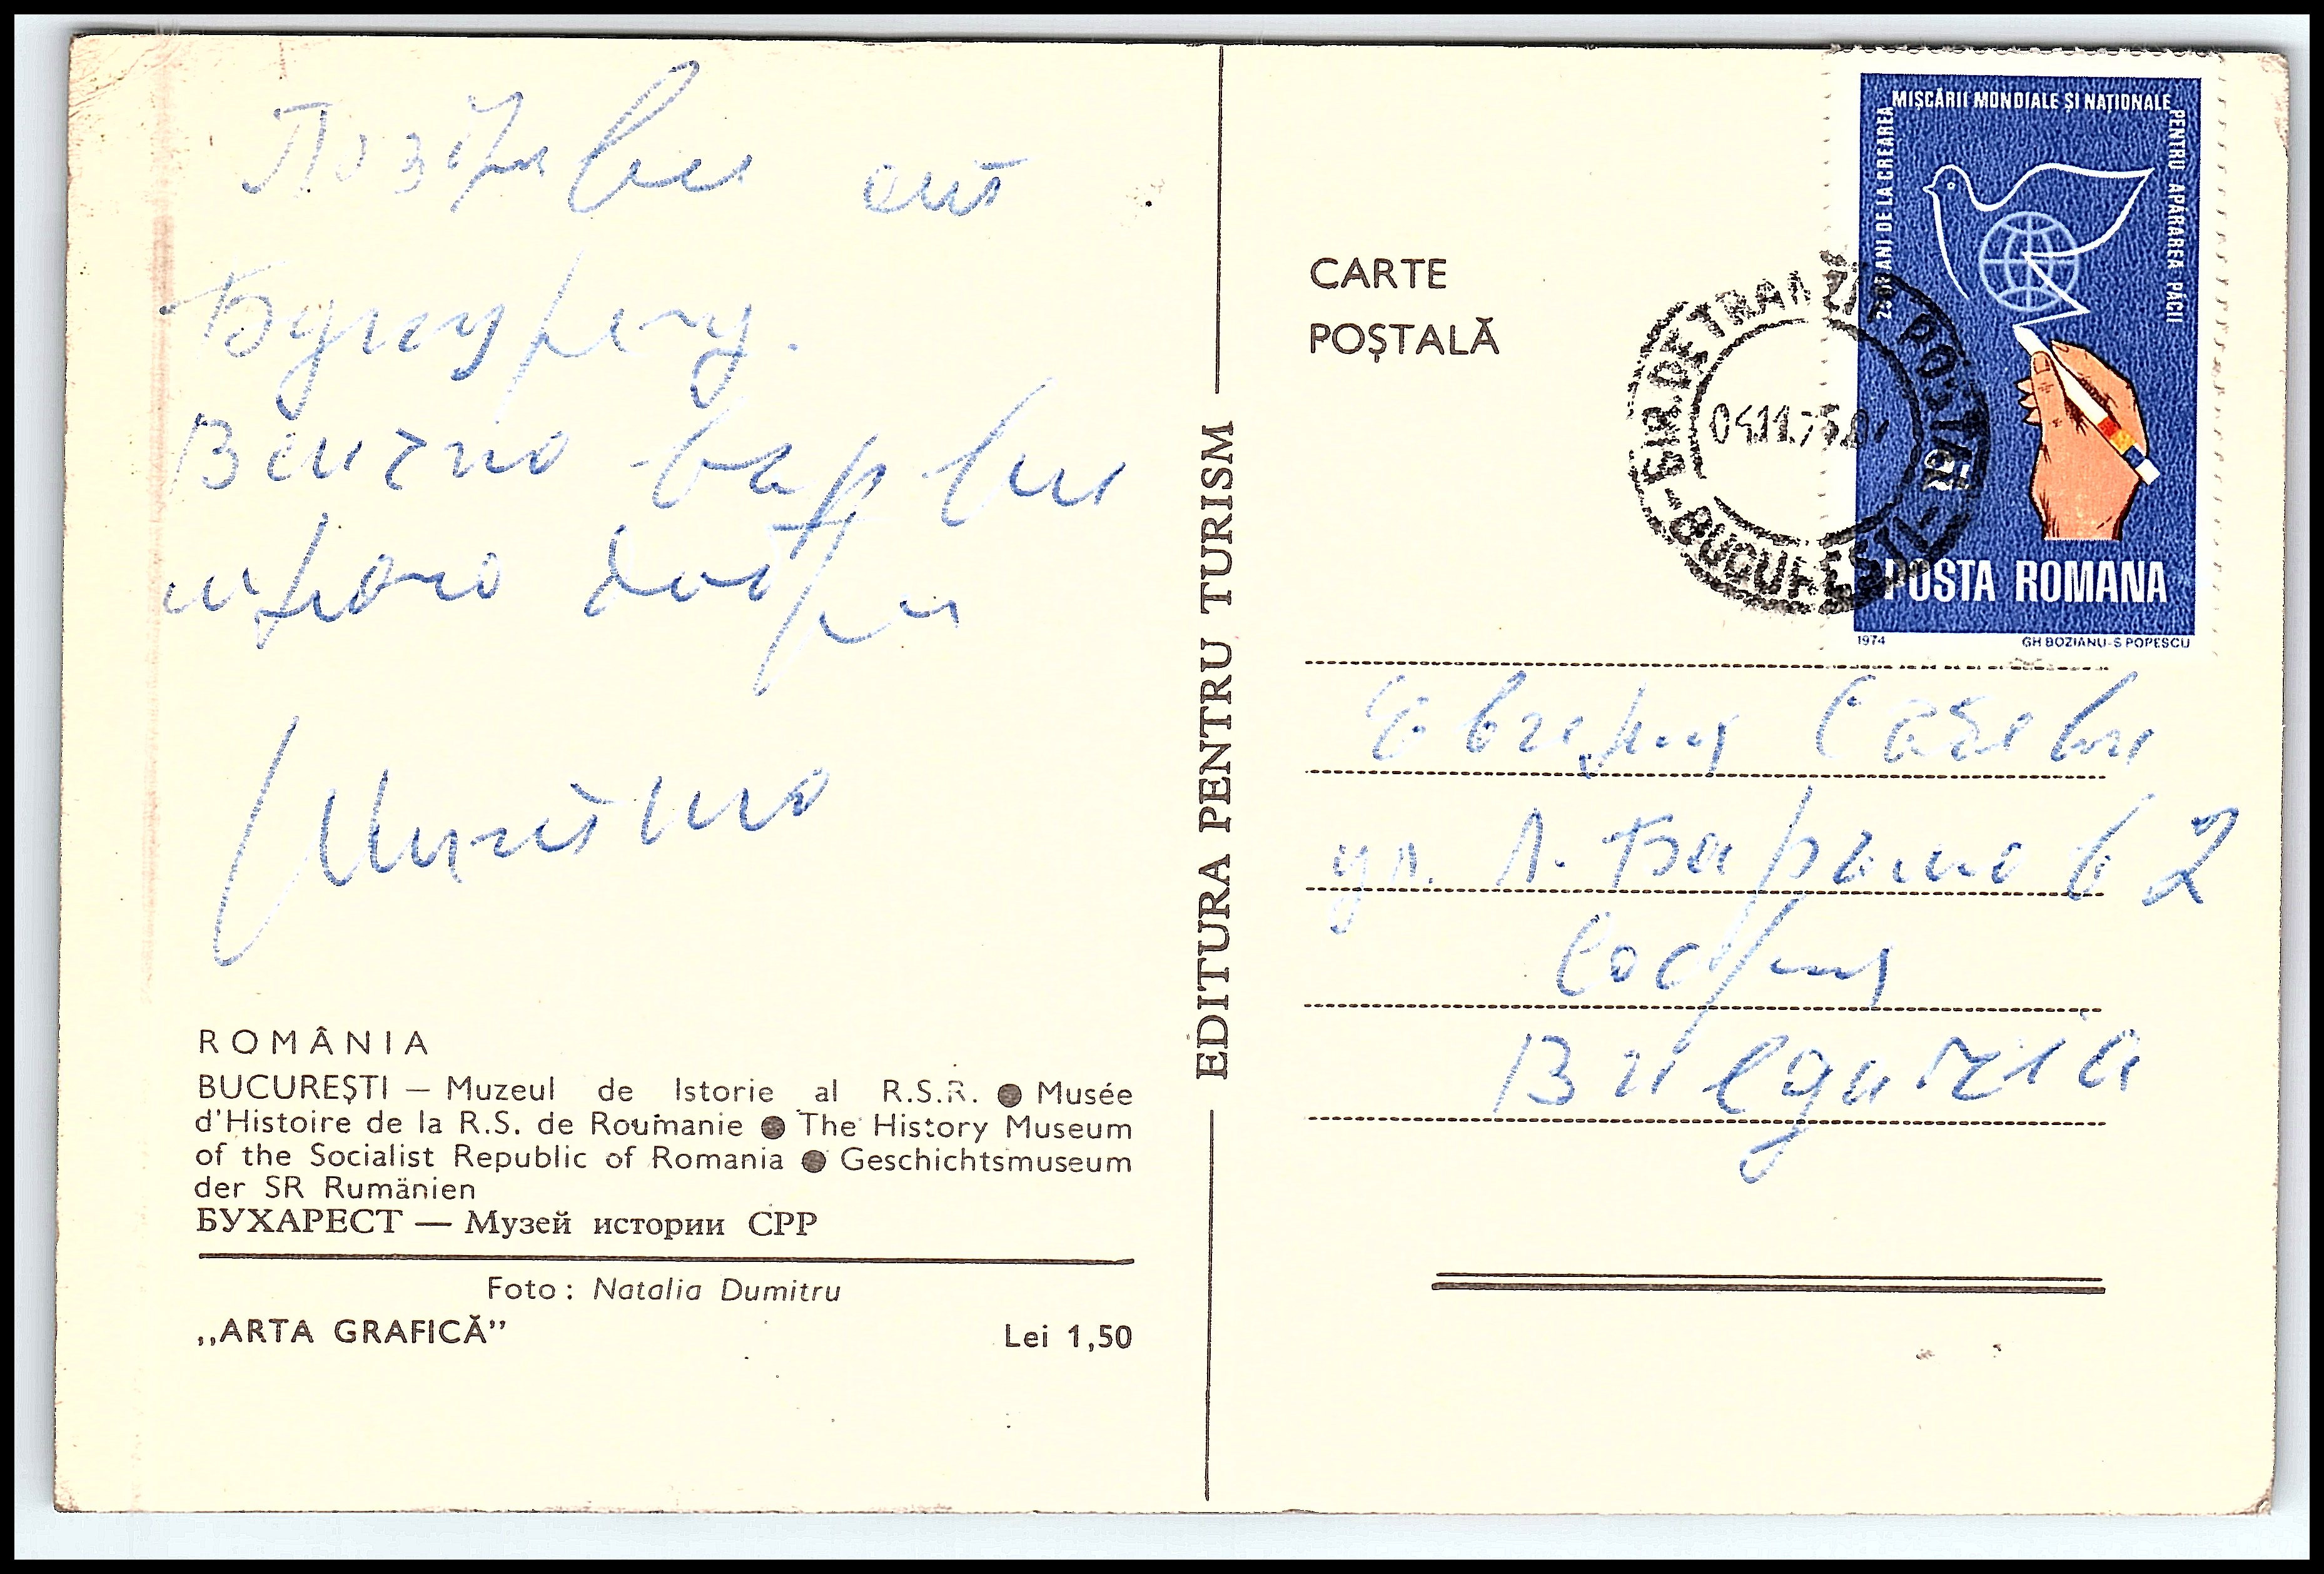 Поздрави от
Букурещ.
Всичко върви
много добре
CARTE
POȘTALĂ
25 DE ANI DE LA CREAREA
MIȘCĂRII MONDIALE ȘI NAȚIONALE
PENTRU APĂRAREA PĂCII
POSTA ROMANA
1974 GH BOZIANU-S POPESCU
DE TRANZIT POȘTAL
BUCUREȘTI
EDITURA PENTRU TURISM
ул. Л. Баръмов 2
София
Bulgaria
ROMÂNIA
BUCUREȘTI — Muzeul de Istorie al R.S.R. ● Musée
d'Histoire de la R.S. de Roumanie ● The History Museum
of the Socialist Republic of Romania ● Geschichtsmuseum
der SR Rumänien
БУХАРЕСТ — Музей истории СРР
Foto: Natalia Dumitru
„ARTA GRAFICĂ” Lei 1,50